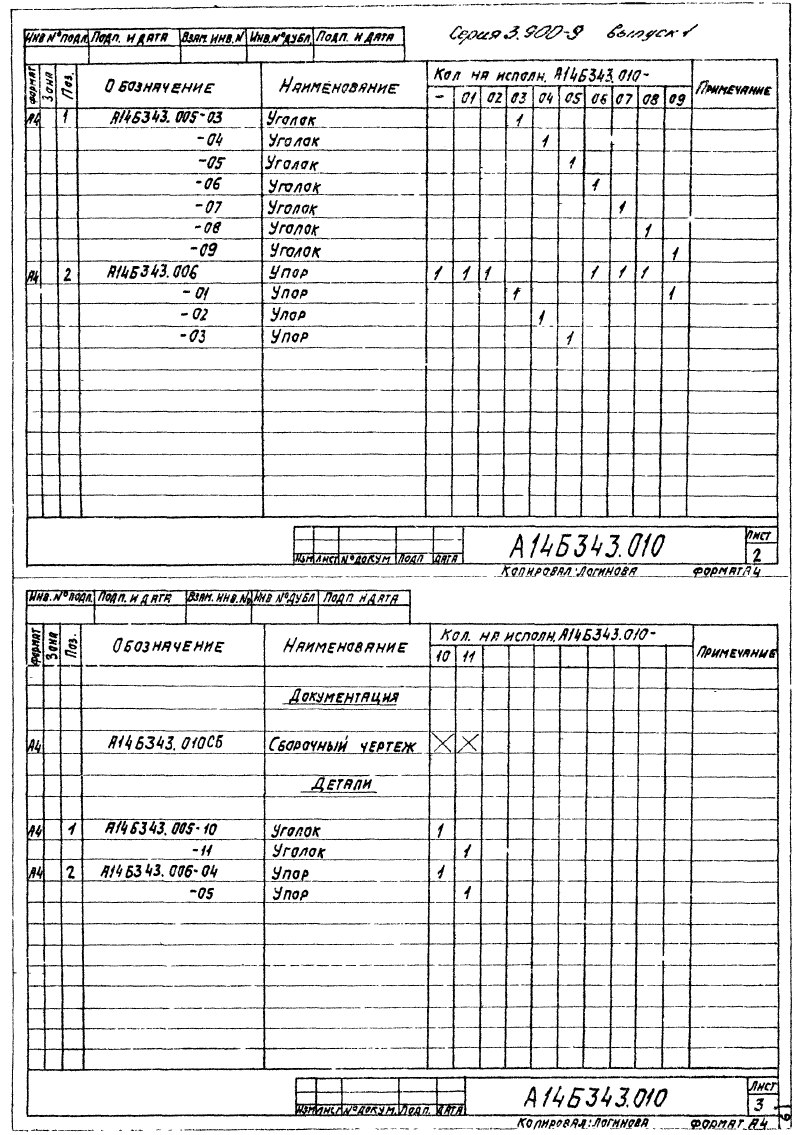 Серия 3.900-9 выпуск 1
Инв № подл. Подп. и дата Взам. инв. № Инв. № дубл. Подп. и дата
Формат Зона Поз. Обозначение Наименование Кол. на исполн. А14Б343.010- Примечание
- 01 02 03 04 05 06 07 08 09
А4 1 А14Б343.005-03 Уголок 1
-04 Уголок 1
-05 Уголок 1
-06 Уголок 1
-07 Уголок 1
-08 Уголок 1
-09 Уголок 1
А4 2 А14Б343.006 Упор 1 1 1 1 1 1
-01 Упор 1 1
-02 Упор 1
-03 Упор 1
Изм Лист № докум Подп Дата А14Б343.010 Лист 2
Копировал: Логинова Формат А4
Инв. № подл. Подп. и дата Взам. инв. № Инв № дубл Подп и дата
Формат Зона Поз. Обозначение Наименование Кол. на исполн. А14Б343.010- Примечание
10 11
Документация
А4 А14Б343.010СБ Сборочный чертеж X X
Детали
А4 1 А14Б343.005-10 Уголок 1
-11 Уголок 1
А4 2 А14Б343.006-04 Упор 1
-05 Упор 1
Изм Лист № докум. Подп. Дата А14Б343.010 Лист 3
Копировал: Логинова Формат А4